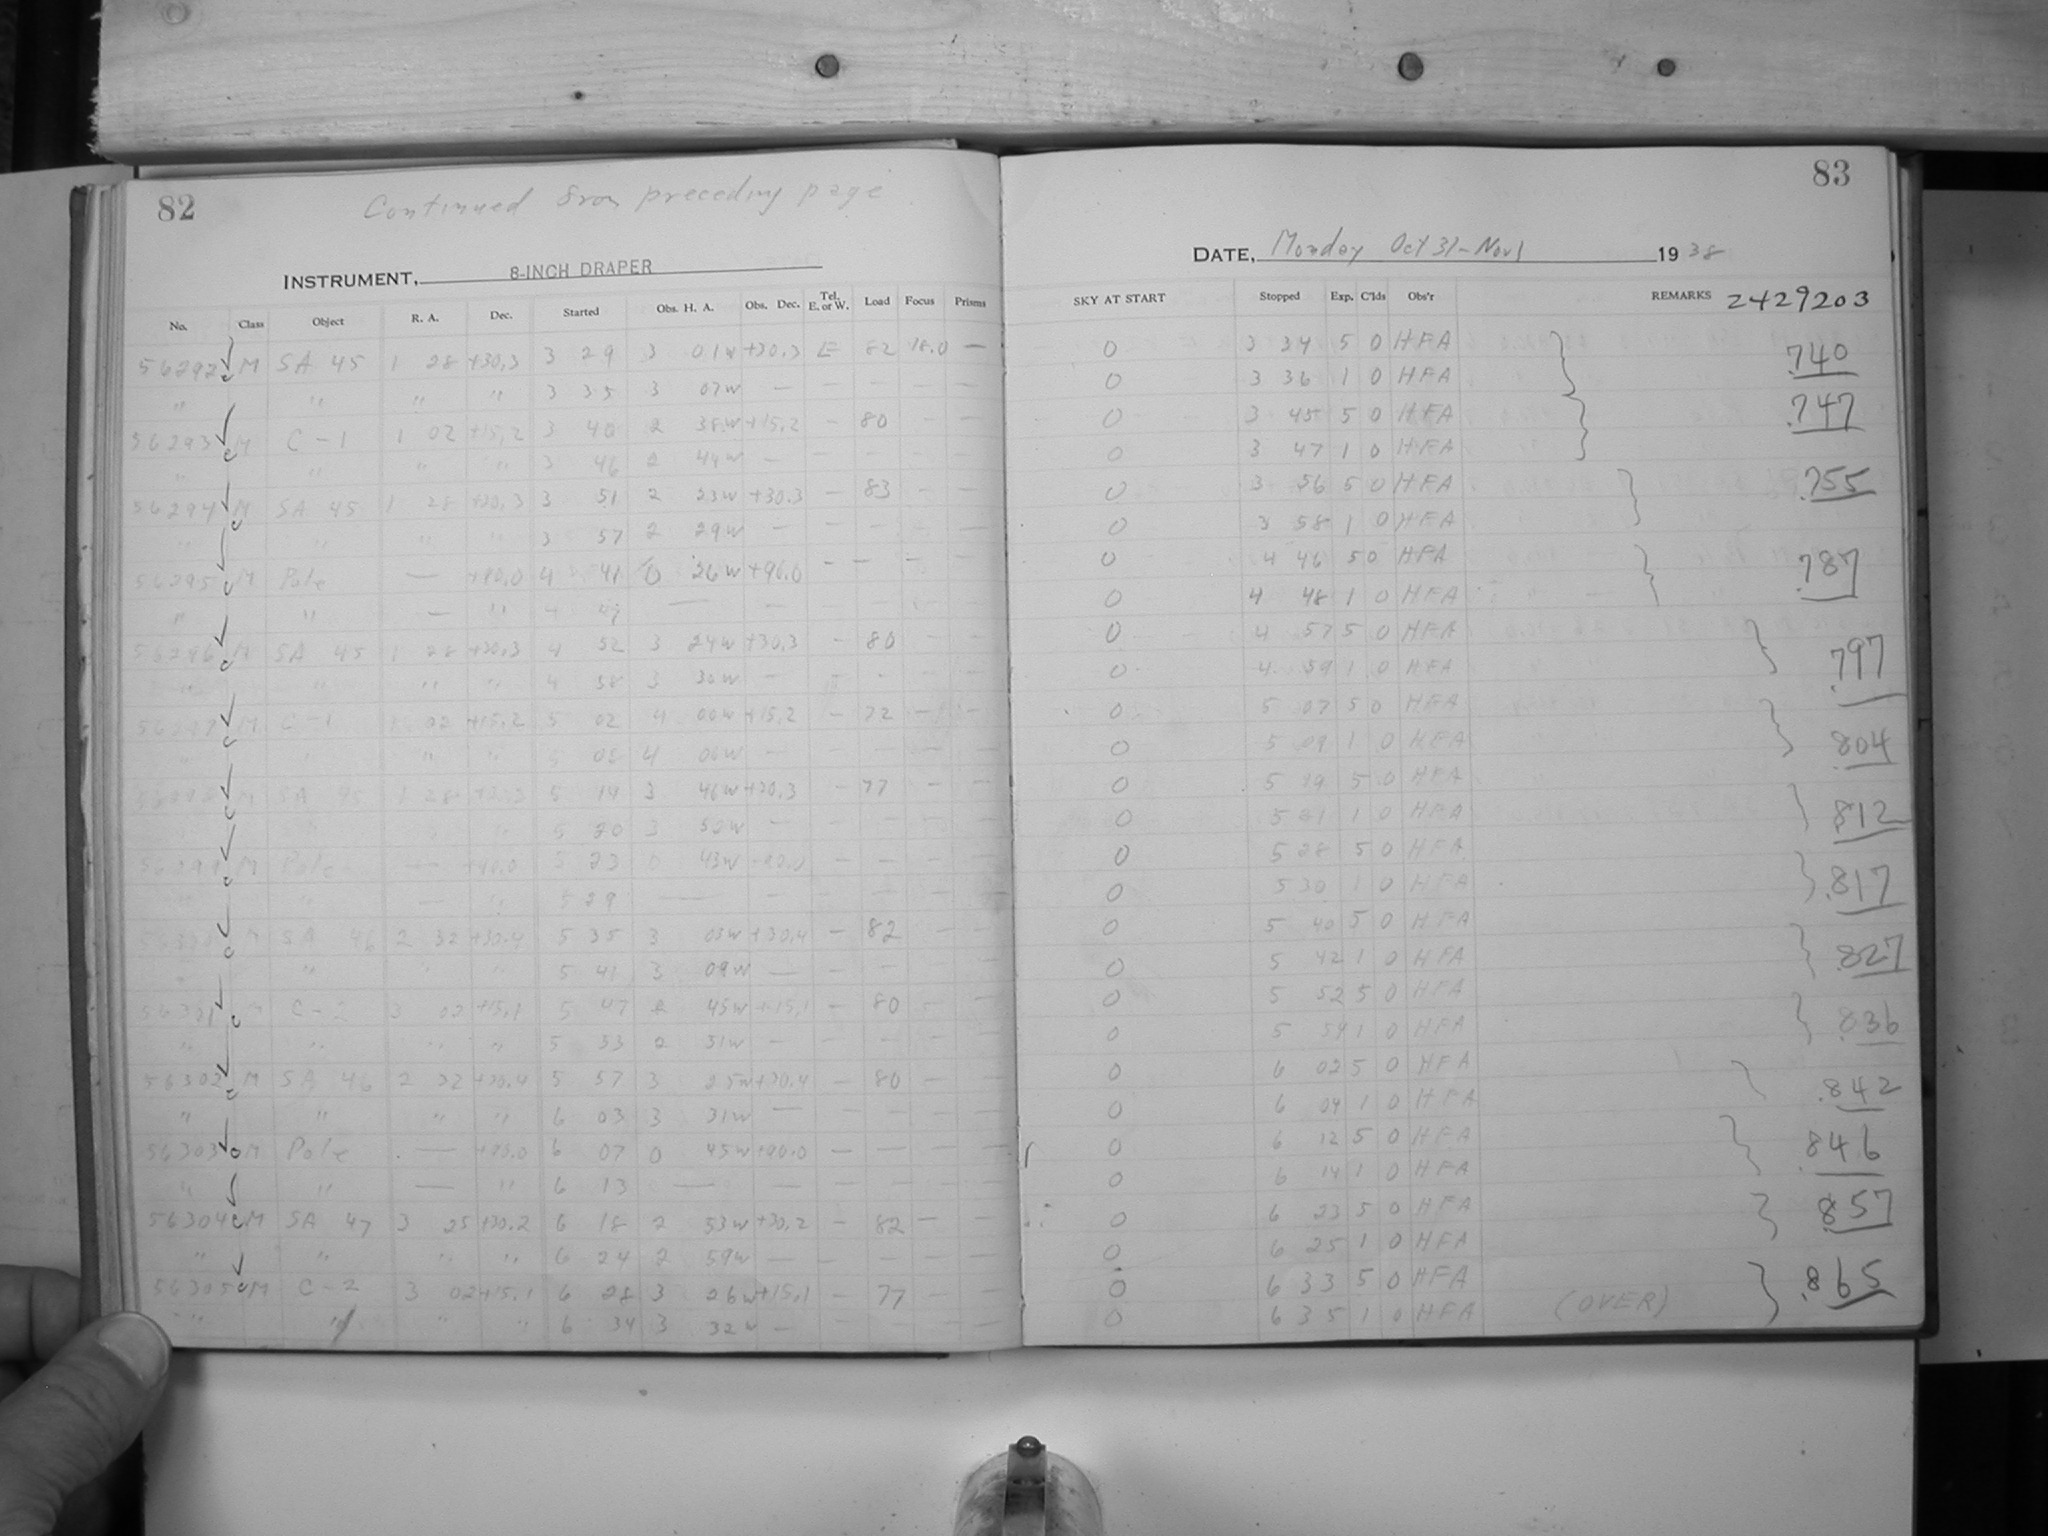 82
Continued from preceding page
INSTRUMENT, 8-INCH DRAPER
No. Class Object R. A. Dec. Started Obs. H. A. Obs. Dec. Tel. E. or W. Load Focus Prisms
56292 M SA 45 1 28 +30.3 3 29 3 01W +30.3 E 82 18.0 —
" " " " 3 35 3 07W — — — — —
56293 M C-1 1 02 +15.2 3 40 2 38W +15.2 — 80 — —
" " " " 3 46 2 44W — — — — —
56294 M SA 45 1 28 +30.3 3 51 2 23W +30.3 — 83 — —
" " " " 3 57 2 29W — — — — —
56295 M Pole — +90.0 4 41 0 26W +90.0 — — — —
" " — " 4 — — — — — —
56296 M SA 45 1 28 +30.3 4 52 3 24W +30.3 — 80 — —
" " " " 4 58 3 30W — — — — —
56297 M C-1 1 02 +15.2 5 02 4 00W +15.2 — 72 — —
" " " " 5 08 4 06W — — — — —
56298 M SA 45 1 28 +30.3 5 14 3 46W +30.3 — 77 — —
" " " " 5 20 3 52W — — — — —
56299 M Pole — +90.0 5 23 0 43W +90.0 — — — —
" " — " 5 29 — — — — — —
56300 M SA 46 2 32 +30.4 5 35 3 03W +30.4 — 82 — —
" " " " 5 41 3 09W — — — — —
56301 M C-2 3 02 +15.1 5 47 2 45W +15.1 — 80 — —
" " " " 5 53 2 51W — — — — —
56302 M SA 46 2 32 +30.4 5 57 3 25W +30.4 — 80 — —
" " " " 6 03 3 31W — — — — —
56303 M Pole — +90.0 6 07 0 45W +90.0 — — — —
" " — " 6 13 — — — — — —
56304 M SA 47 3 25 +30.2 6 18 2 53W +30.2 — 82 — —
" " " " 6 24 2 59W — — — — —
56305 M C-2 3 02 +15.1 6 28 3 26W +15.1 — 77 — —
" " " " 6 34 3 32W — — — — —
83
DATE, Monday Oct 31-Nov 1 1938
SKY AT START Stopped Exp. C'lds Obs'r REMARKS 2429203
0 3 34 5 0 HFA .740
0 3 36 1 0 HFA
0 3 45 5 0 HFA .747
0 3 47 1 0 HFA
0 3 56 5 0 HFA .755
0 3 58 1 0 HFA
0 4 46 5 0 HFA .787
0 4 48 1 0 HFA
0 4 57 5 0 HFA .797
0 4 59 1 0 HFA
0 5 07 5 0 HFA .804
0 5 09 1 0 HFA
0 5 19 5 0 HFA .812
0 5 21 1 0 HFA
0 5 28 5 0 HFA .817
0 5 30 1 0 HFA
0 5 40 5 0 HFA .827
0 5 42 1 0 HFA
0 5 52 5 0 HFA .836
0 5 54 1 0 HFA
0 6 02 5 0 HFA .842
0 6 04 1 0 HFA
0 6 12 5 0 HFA .846
0 6 14 1 0 HFA
0 6 23 5 0 HFA .857
0 6 25 1 0 HFA
0 6 33 5 0 HFA .865
0 6 35 1 0 HFA (OVER)